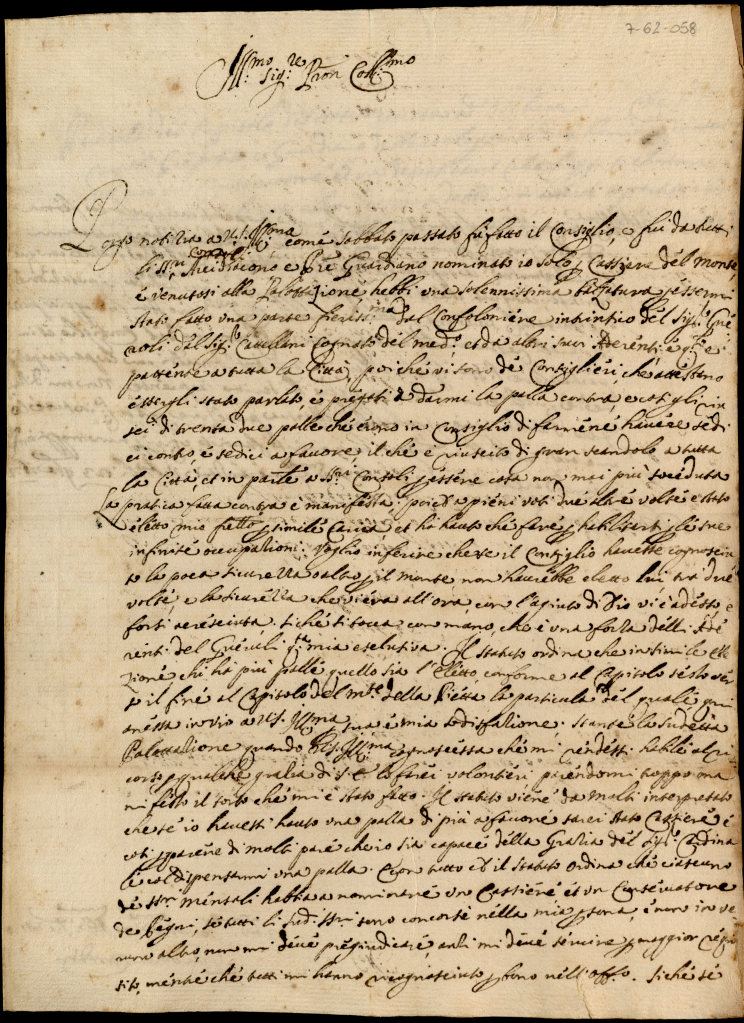 7-62-058
Ill:mo Sig:re Pron Coll:mo
Porgo notizia a V.S. Ill:ma come Sabbato passato fù fatto il Consiglio, e fui da tutti
li SS:ri Consoli Arcidiacono e Guardiano nominato io solo p Cassiere del Monte
e venutosi alla Palottazione, hebbi una solennissima p essermi
stato fatto una parte fierissima dal Confoloniere intrinsico del Sig:r
dal Sig:r Cavallani Cognato del med:o, et da altri suoi Aderenti, e
patente a tutta la Città, poiche vi sono de Consiglieri, che attestano
essergli stato parlato, e pregati a darmi la palla contra, e così gli
sei di trenta due palle che erano in Consiglio di farmene havere sedi
ci contro, e sedici a favore, il che è riuscito di gran scandolo a tutta
la Città, et in parte a SS:ri Consoli p essere cosa non mai più succeduta
La pratica fatta contra è manifesta, poiche a pieni voti due altre volte è stato
eletto mio fratello p simile Carica, et hà hauto che fare p habilitarsi p le sue
infinite occupationi. Voglio inferire che se il Consiglio havesse cognosciu
to la poca sicurezza p il monte non haurebbe eletto lui tra due
volte, e la sicurezza che vi era all'ora, con l'agiuto di Dio vi è adesso, e
forsi accresciuta. Siche si tocca con mano, che è una forza delli Ade
renti del q:sta mia esclusiva. Il statuto ordina che in simile Ele
zione chi hà più palle quello sia l'Eletto, conforme al Capitolo sesto ver
so il fine al Capitolo del m:te della Pietà la particula del quale qui
anessa invio a V.S. Ill:ma p sua e mia sodisfatione. Stante la sudetta
Palottatione quando V.S. Ill:ma cognoscessa che mi rendessi habile al ri
corso p qualche gratia di S.E. lo farei volontieri parendomi troppo ma
nifesto il torto che mi è stato fatto. Il statuto viene da molti interpretato
che se io havessi hauto una palla di più a favore sarei stato Cassiere, e
così p parere di molti pare che io sia capace della Gratia del Sig:r Cardina
le col dispensarmi una palla. Con tutto ciò il statuto ordina che ciascuno
de SS:ri mensali habbia a nominare un Cassiere et un Conservatore
de Pegni, se tutti li sud:i SS:ri sono concorsi nella mia p sona, e non in ve
run altro, non mi deve pregiudicare, anzi mi deve servire p maggior requi
sito, mentre che tutti mi hanno ricognosciuto p nell'off:o. Siche se